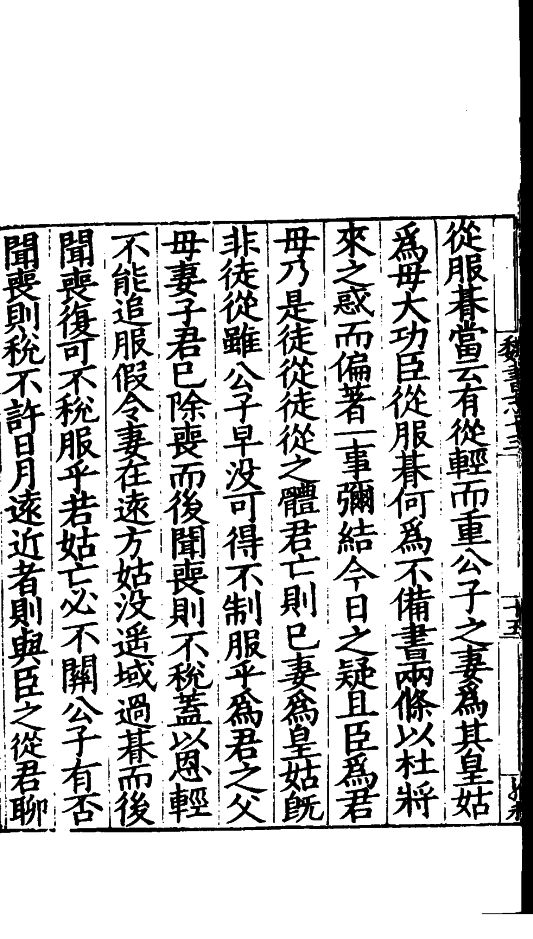 魏書志十三
十五
從服朞當云有從輕而重公子之妻爲其皇姑
爲母大功臣從服朞何爲不備書兩條以杜將
來之惑而偏著一事彌結今日之疑且臣爲君
母乃是徒從徒從之體君亡則已妻爲皇姑旣
非徒從雖公子早没可得不制服乎爲君之父
母妻子君巳除喪而後聞喪則不稅蓋以恩輕
不能追服假令妻在遠方姑没遥域過朞而後
聞喪復可不稅服乎若姑亡必不關公子有否
聞喪則稅不許日月遠近者則與臣之從君聊